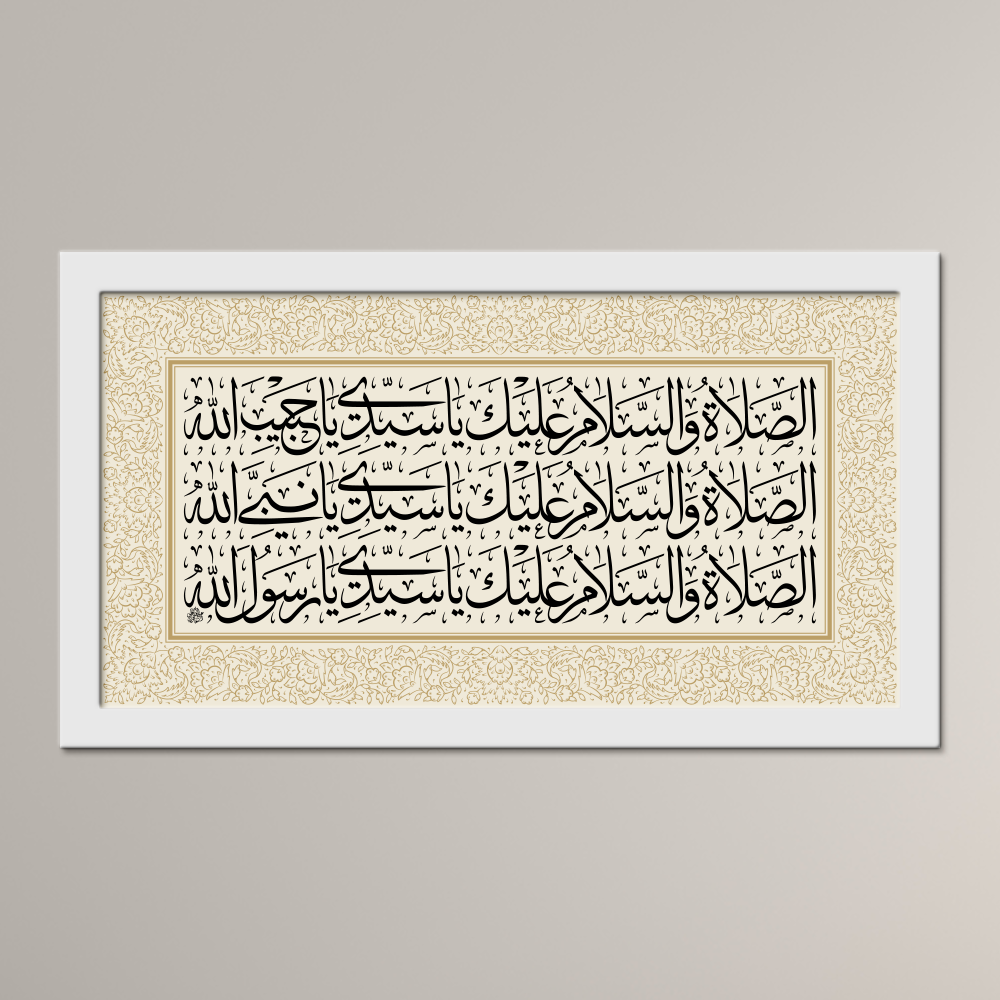 الصَّلَاةُ وَالسَّلَامُ عَلَيْكَ يَا سَيِّدِي يَا حَبِيبَ اللهِ
الصَّلَاةُ وَالسَّلَامُ عَلَيْكَ يَا سَيِّدِي يَا نَبِيَّ اللهِ
الصَّلَاةُ وَالسَّلَامُ عَلَيْكَ يَا سَيِّدِي يَا رَسُولَ اللهِ